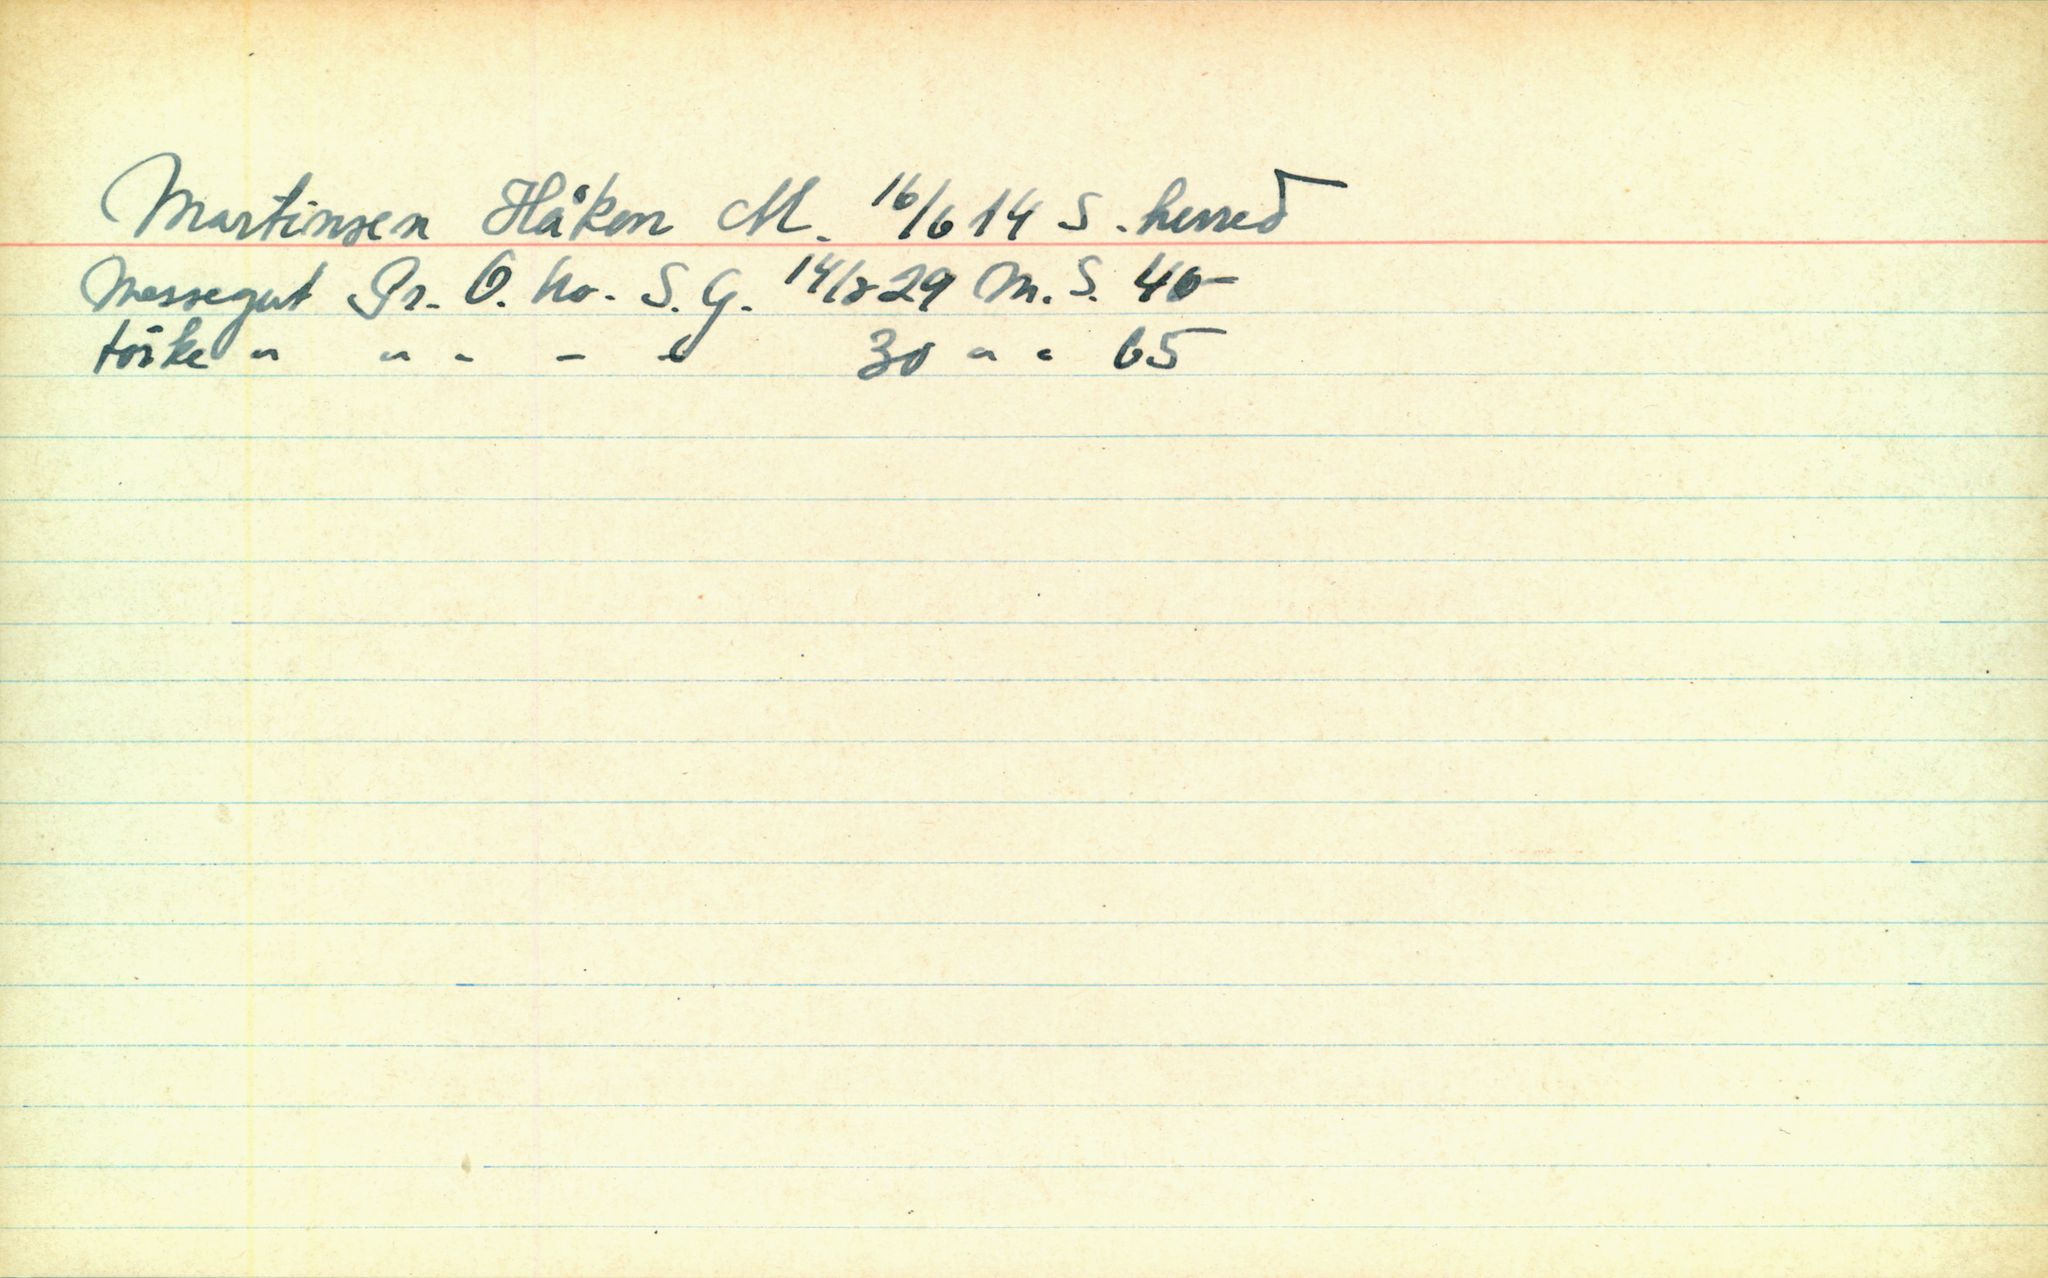 Martinsen Håkon M. 16/6 14 S. herred
Messegut Pr. O. Ko. S. G. 14/8 29 M. S. 40-
törke " " " - " 30 " " 65